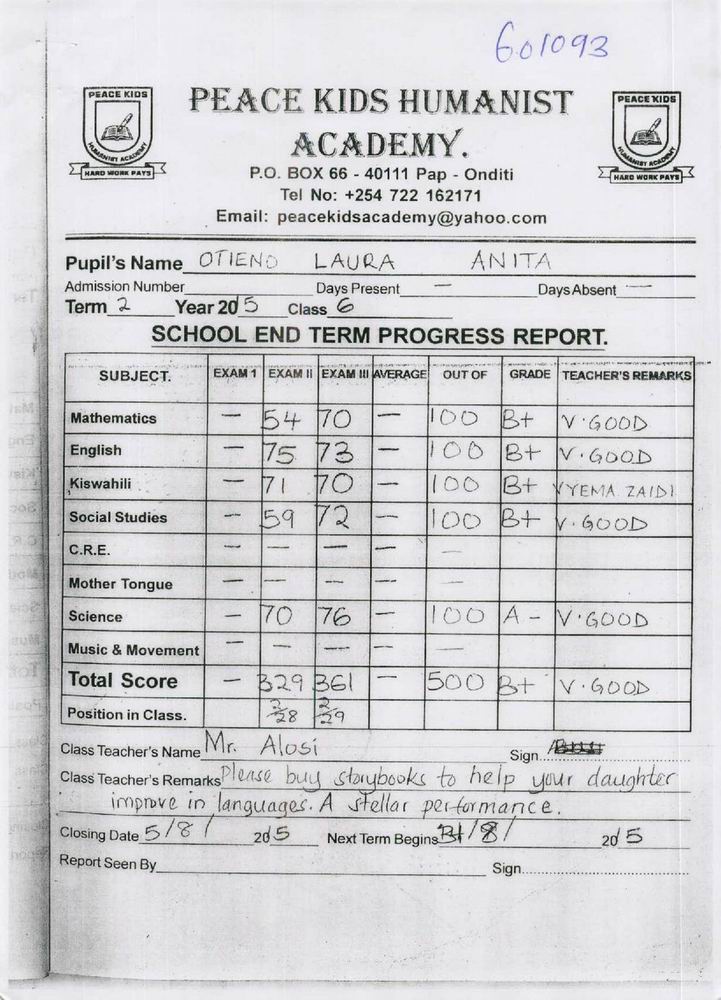 601093
PEACE KIDS
HUMANIST ACADEMY
HARD WORK PAYS
PEACE KIDS HUMANIST
ACADEMY.
PEACE KIDS
HUMANIST ACADEMY
HARD WORK PAYS
P.O. BOX 66 - 40111 Pap - Onditi
Tel No: +254 722 162171
Email: peacekidsacademy@yahoo.com
Pupil's Name OTIENO LAURA ANITA
Admission Number — Days Present — Days Absent —
Term 2 Year 2015 Class 6
SCHOOL END TERM PROGRESS REPORT.
SUBJECT. EXAM 1 EXAM II EXAM III AVERAGE OUT OF GRADE TEACHER'S REMARKS
Mathematics — 54 70 — 100 B+ V. GOOD
English — 75 73 — 100 B+ V. GOOD
Kiswahili — 71 70 — 100 B+ VYEMA ZAIDI
Social Studies — 59 72 — 100 B+ V. GOOD
C.R.E. — — — — —
Mother Tongue — — — — —
Science — 70 76 — 100 A- V. GOOD
Music & Movement — — — — —
Total Score — 329 361 — 500 B+ V. GOOD
Position in Class. 2/28 2/29
Class Teacher's Name Mr. Alosi Sign
Class Teacher's Remarks Please buy storybooks to help your daughter
improve in languages. A stellar performance.
Closing Date 5/8/ 2015 Next Term Begins 31/8/ 2015
Report Seen By Sign